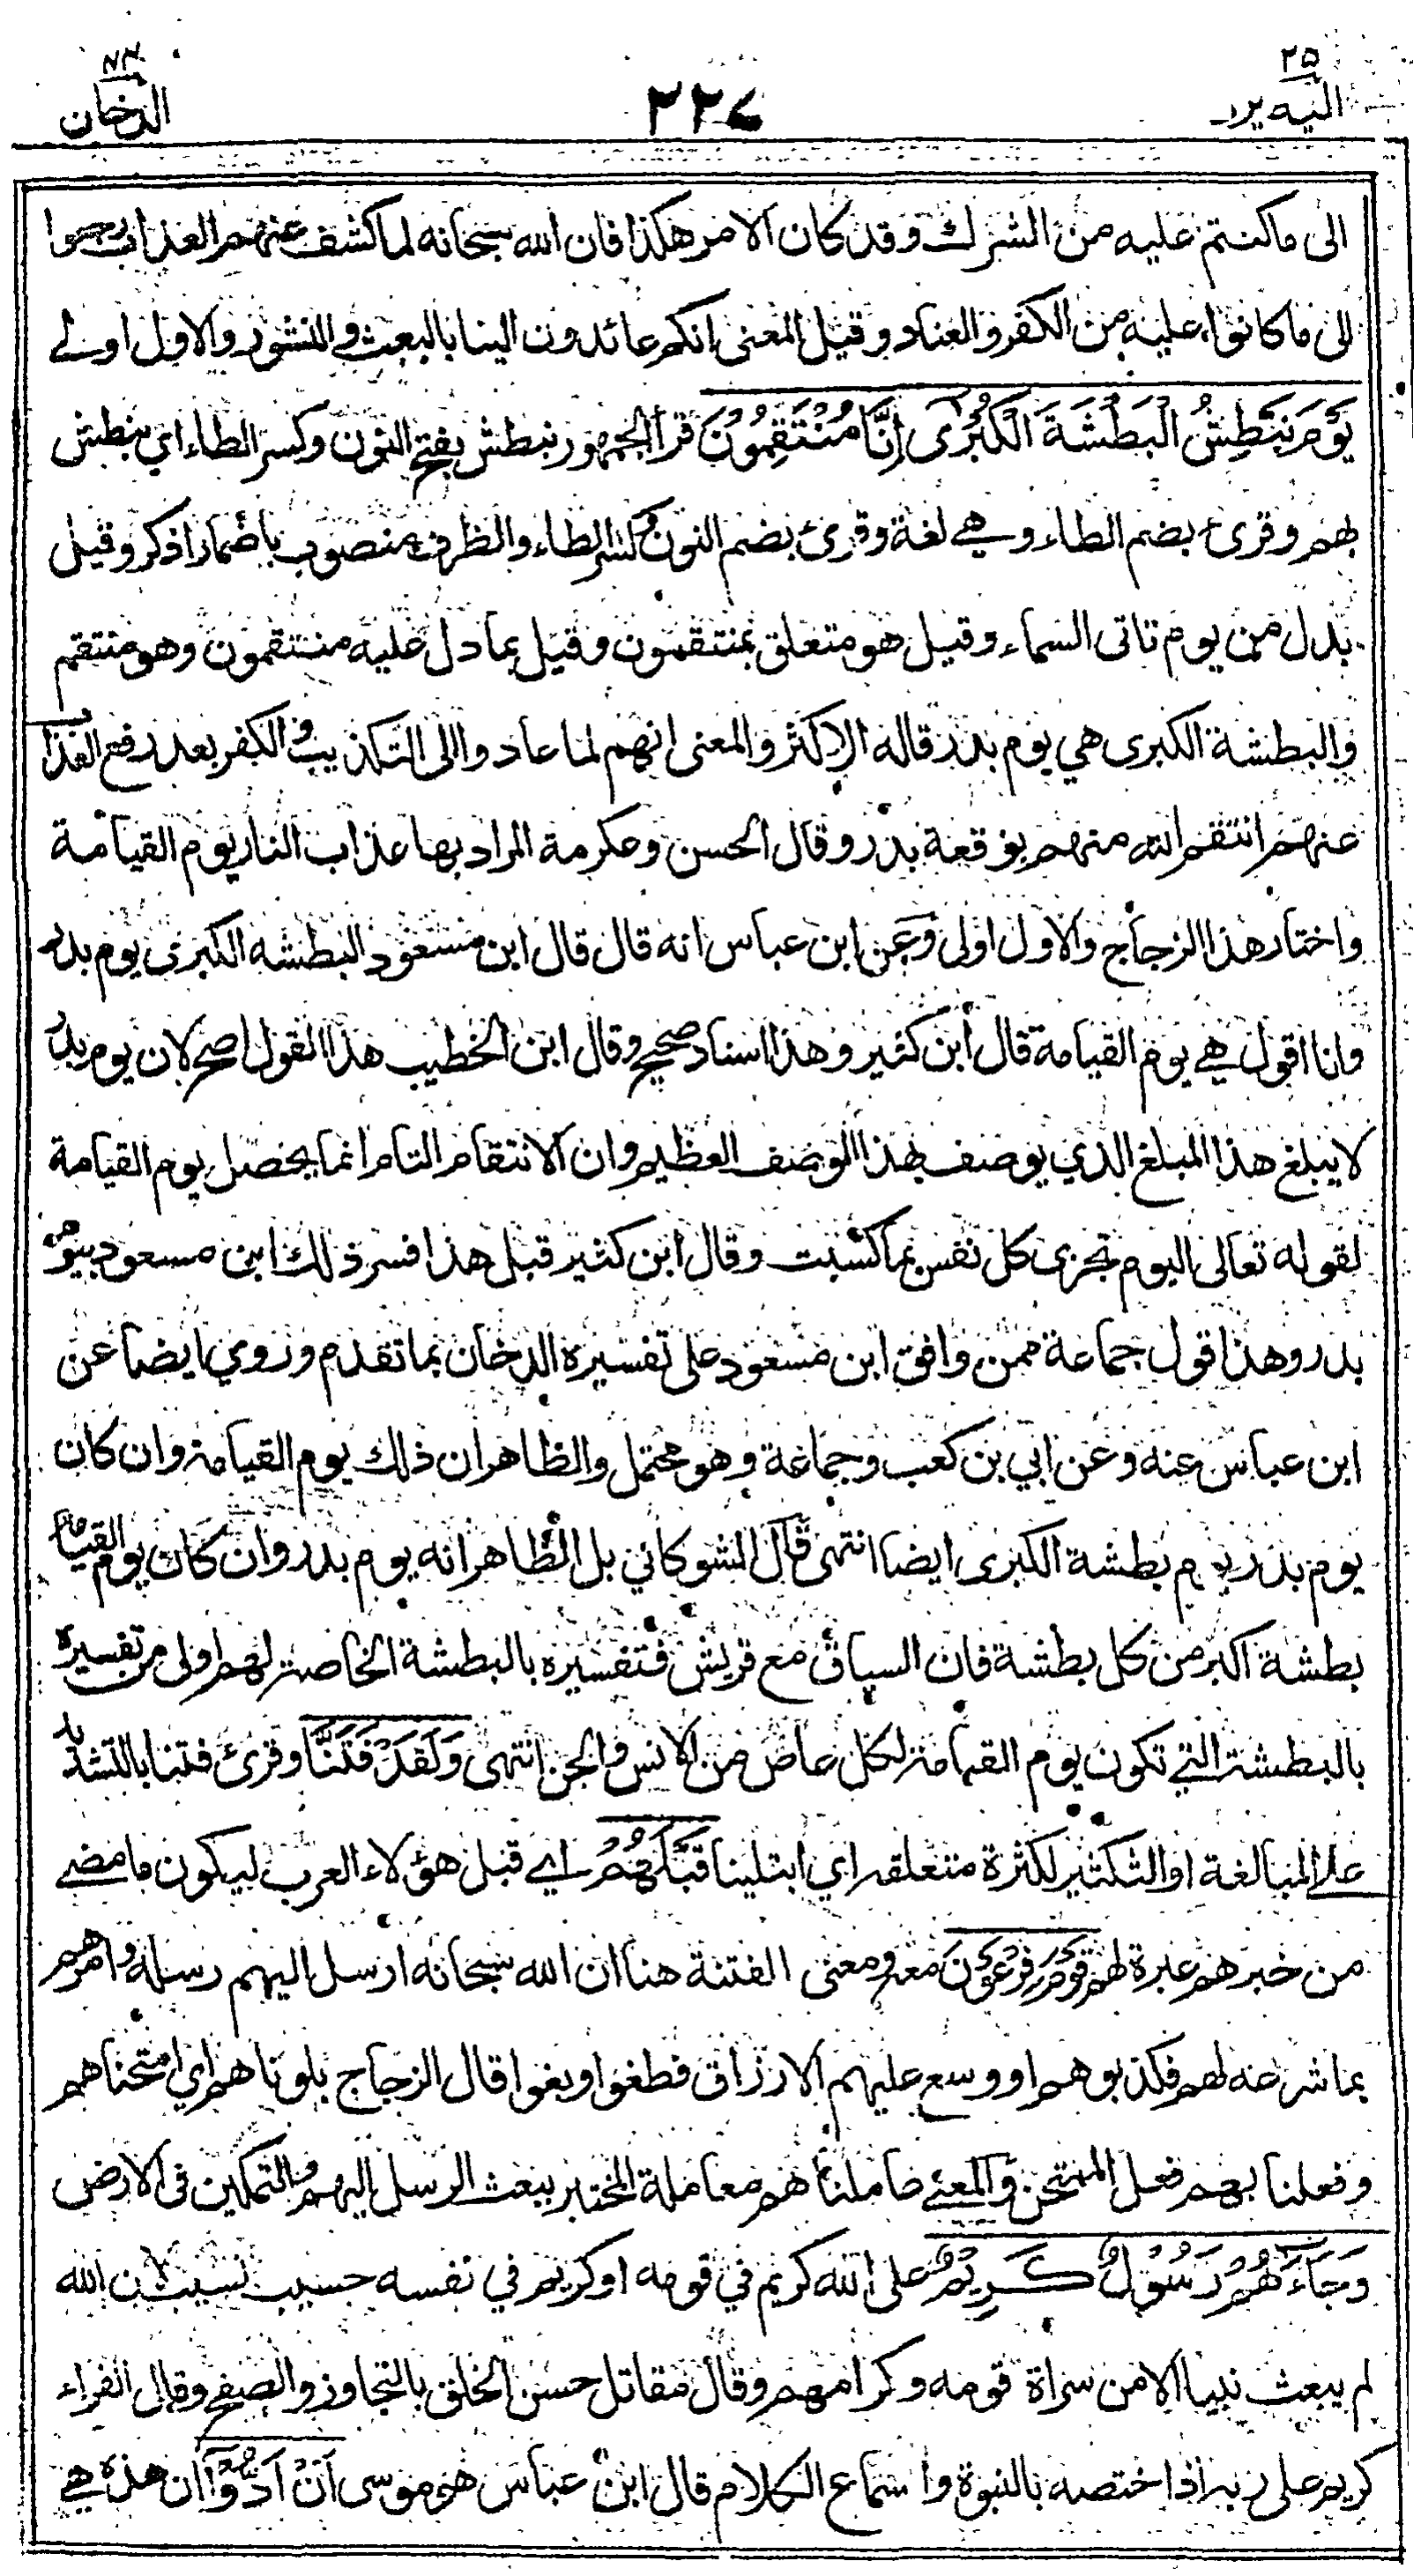 ٢٥
اليه يرد
٣٢٧
٤٤
الدخان
الى ما كنتم عليه من الشرك وقد كان الامر هكذا فان الله سبحانه لما كشف عنهم العذاب رجعوا
الى ما كانوا عليه من الكفر والعناد وقيل المعنى انكم عائدون الينا بالبعث والنشور والاول اولى
يَوْمَ نَبْطِشُ الْبَطْشَةَ الْكُبْرٰى اِنَّا مُنْتَقِمُوْنَ قرأ الجمهور نبطش بفتح النون وكسر الطاء اي نبطش
بهم وقرئ بضم الطاء وهي لغة وقرئ بضم النون وكسر الطاء والظرف منصوب باضمار اذكر وقيل
بدل من يوم تاتى السماء وقيل هو متعلق بمنتقمون وقيل بما دل عليه منتقمون وهو منتقم
والبطشة الكبرى هي يوم بدر قاله الاكثر والمعنى انهم لما عادوا الى التكذيب والكفر بعد رفع العذاب
عنهم انتقم الله منهم بوقعة بدر وقال الحسن وعكرمة المراد بها عذاب النار يوم القيامة
واختار هذا الزجاج والاول اولى وعن ابن عباس انه قال قال ابن مسعود البطشة الكبرى يوم بدر
وانا اقول هي يوم القيامة قال ابن كثير وهذا اسناد صحيح وقال ابن الخطيب هذا القول اصح لان يوم بدر
لا يبلغ هذا المبلغ الذي يوصف بهذا الوصف العظيم وان الانتقام التام انما يحصل يوم القيامة
لقوله تعالى اليوم تجزى كل نفس بما كسبت وقال ابن كثير قبل هذا فسر ذلك ابن مسعود بيوم
بدر وهذا قول جماعة ممن وافق ابن مسعود على تفسيره الدخان بما تقدم وروي ايضا عن
ابن عباس عنه وعن ابي بن كعب وجماعة وهو محتمل والظاهر ان ذلك يوم القيامة وان كان
يوم بدر يوم بطشة الكبرى ايضا انتهى قال الشوكاني بل الظاهر انه يوم بدر وان كان يوم القيامة
بطشة اكبر من كل بطشة فان السياق مع قريش فتفسيره بالبطشة الخاصة لهم اولى من تفسيره
بالبطشة التي تكون يوم القيامة لكل عاص من الانس والجن انتهى وَلَقَدْ فَتَنَّا وقرئ فتنا بالتشديد
على المبالغة او التكثير لكثرة متعلقه اي ابتلينا قَبْلَهُمْ اي قبل هؤلاء العرب ليكون ما مضى
من خبرهم عبرة لهم قَوْمَ فِرْعَوْنَ معه ومعنى الفتنة هنا ان الله سبحانه ارسل اليهم رسله وامرهم
بما شرعه لهم فكذبوهم او وسع عليهم الارزاق فطغوا وبغوا قال الزجاج بلوناهم اي امتحناهم
وفعلنا بهم فعل الممتحن والمعنى عاملناهم معاملة المختبر ببعث الرسل اليهم والتمكين في الارض
وَجَاءَهُمْ رَسُوْلٌ كَرِيْمٌ على الله كريم في قومه او كريم في نفسه حسيب نسيب لان الله
لم يبعث نبيا الا من سراة قومه وكرامهم وقال مقاتل حسن الخلق بالتجاوز والصفح وقال الفراء
كريم على ربه اذ اختصه بالنبوة واسماع الكلام قال ابن عباس هو موسى اَنْ اَدُّوْا ان هذه هي